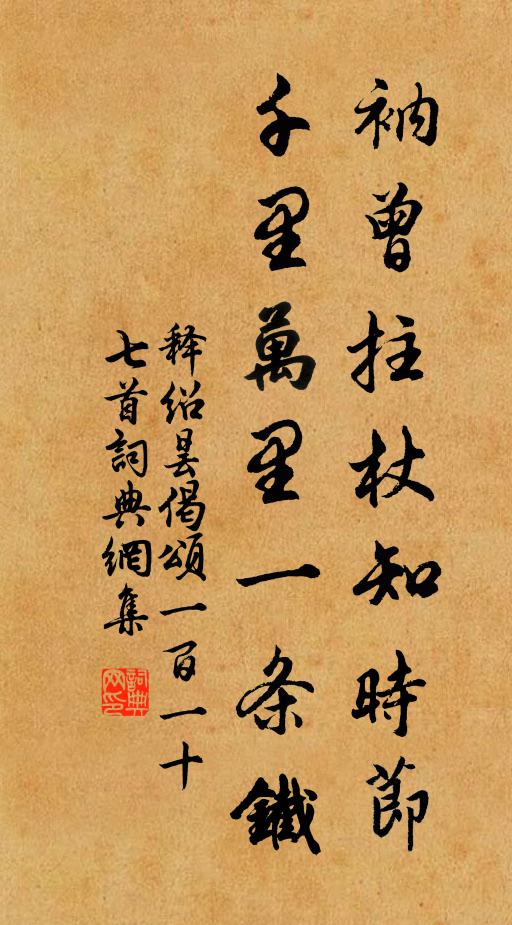 衲曾拄杖知時節
千里萬里一条鐵
释紹昙偈頌一百一十
七首詞典網集
詞典網印